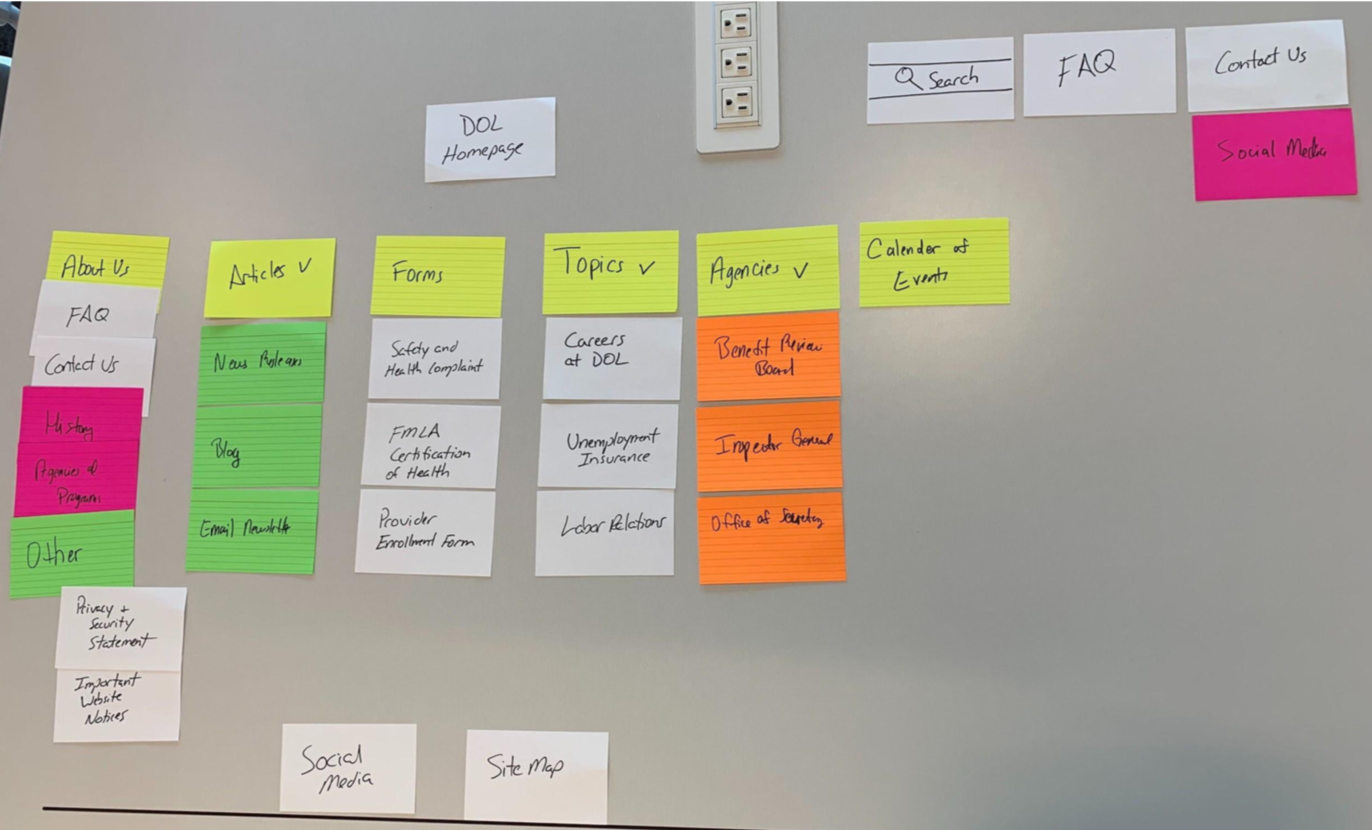 Search
FAQ
Contact Us
Social Media
DOL
Homepage
About Us
FAQ
Contact Us
History
Agencies &
Program
Other
Privacy +
Security
Statement
Important
Website
Notices
Articles ✓
News Releases
Blog
Email Newsletter
Forms
Safety and
Health Complaint
FMLA
Certification
of Health
Provider
Enrollment Form
Topics ✓
Careers
at DOL
Unemployment
Insurance
Labor Relations
Agencies ✓
Benefit Review
Board
Inspector General
Office of Secretary
Calender of
Events
Social
Media
Site Map